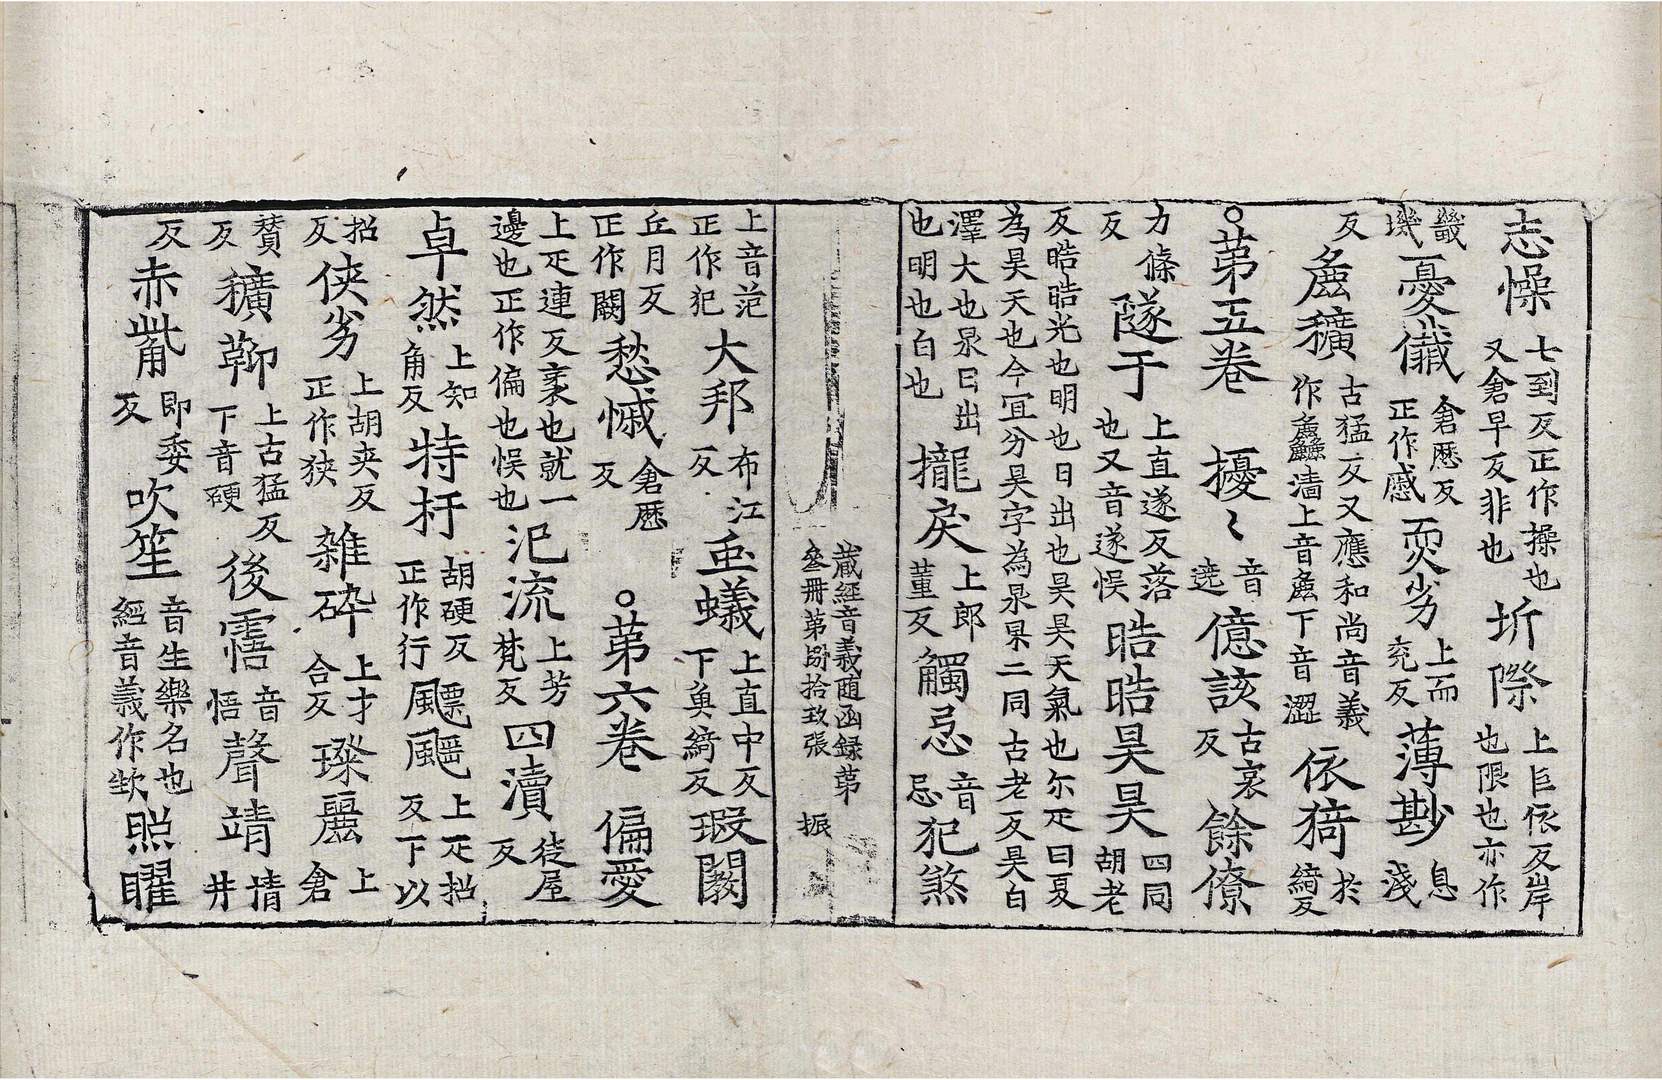 志懆七到反正作操也又倉早反非也圻際上巨依反岸也限也亦作
畿璣憂儎倉歷反正作慼耎劣上而兖反薄尠息淺
反麁穬古猛反又應和尚音義作麁䵃濇上音麁下音澀依猗於綺反
○苐五卷　擾〻音遶億該古哀反餘僚
力條反隧于上直遂反落也又音遂悮晧晧昊昊四同胡老
反晧晧光也明也日出也昊昊天氣也尓疋曰夏為昊天也今冝分昊字為杲杲二同古老反昊白
澤大也杲日出也明也白也攏戾上郎董反觸忌音忌犯煞
蔵經音義随函録苐叄冊苐捌拾玖張　振
上音范正作犯大邦布江反䖝蟻上直中反下魚綺反瑕闋
丘月反正作闕愁慽倉歷反　○苐六卷　偏愛
上疋連反袤也就一邊也正作偏也悮也汜流上芳梵反四瀆徒屋反
卓然上知角反特杅胡硬反正作行飃颺上疋招反下以
招反俠劣上胡夾反正作狹雜碎上才合反璨麗上倉
賛反穬䩕上古猛反下音硬後㝛音悟聲靖情井
反赤觜即委反吹笙音生樂名也經音義作㰠照曜